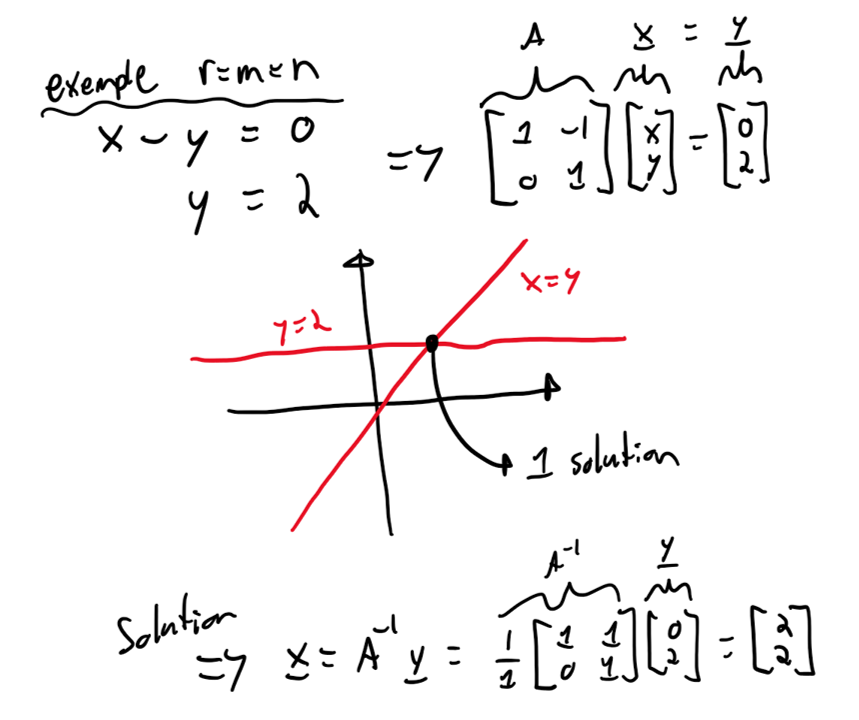 exemple r=m=n
A x = y
x - y = 0
y = 2
=> [1 -1; 0 1] [x; y] = [0; 2]
x=y
y=2
1 solution
A⁻¹ y
Solution
=> x = A⁻¹ y = 1/1 [1 1; 0 1] [0; 2] = [2; 2]